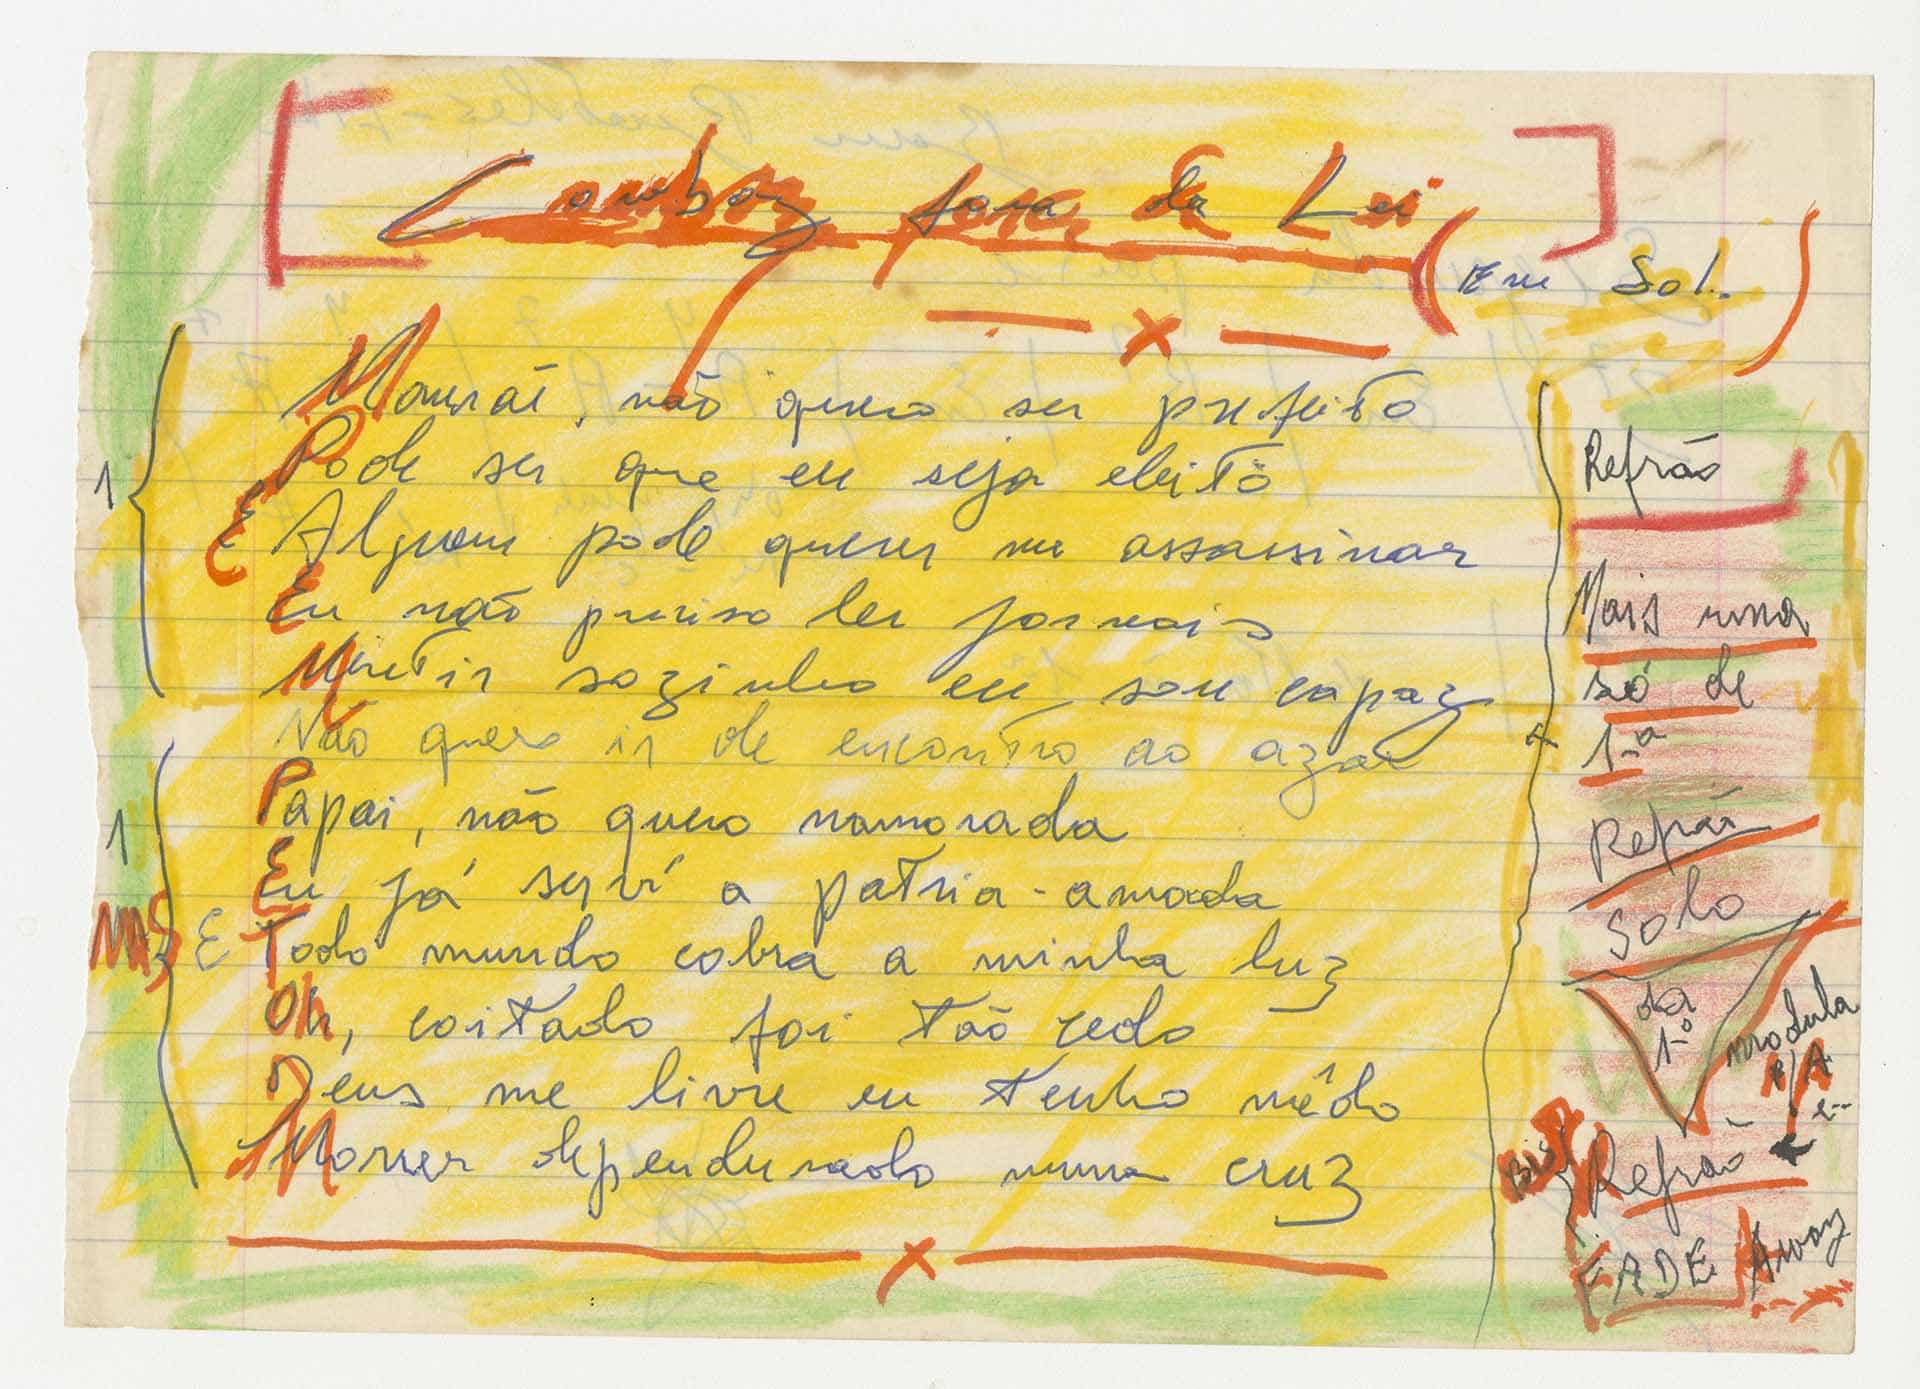 Cowboy fora da Lei
(Em Sol.)
Mamãi, não quero ser prefeito
Pode ser que eu seja eleito
E Alguem pode querer me assassinar
Eu não preciso ler jornais
Mentir sozinho eu sou capaz
Não quero ir de encontro ao azar
1
Papai, não quero namorada
Eu já serví a patria-amada
E Todo mundo cobra a minha luz
Oh, coitado foi tão cedo
Deus me livre eu tenho mêdo
Morrer dependurado numa cruz
1
Refrão
Mais uma
só de
1ª
Refrão
Solo
da
1º
modula
P/A
e--
Bis
Refrão
FADE Away